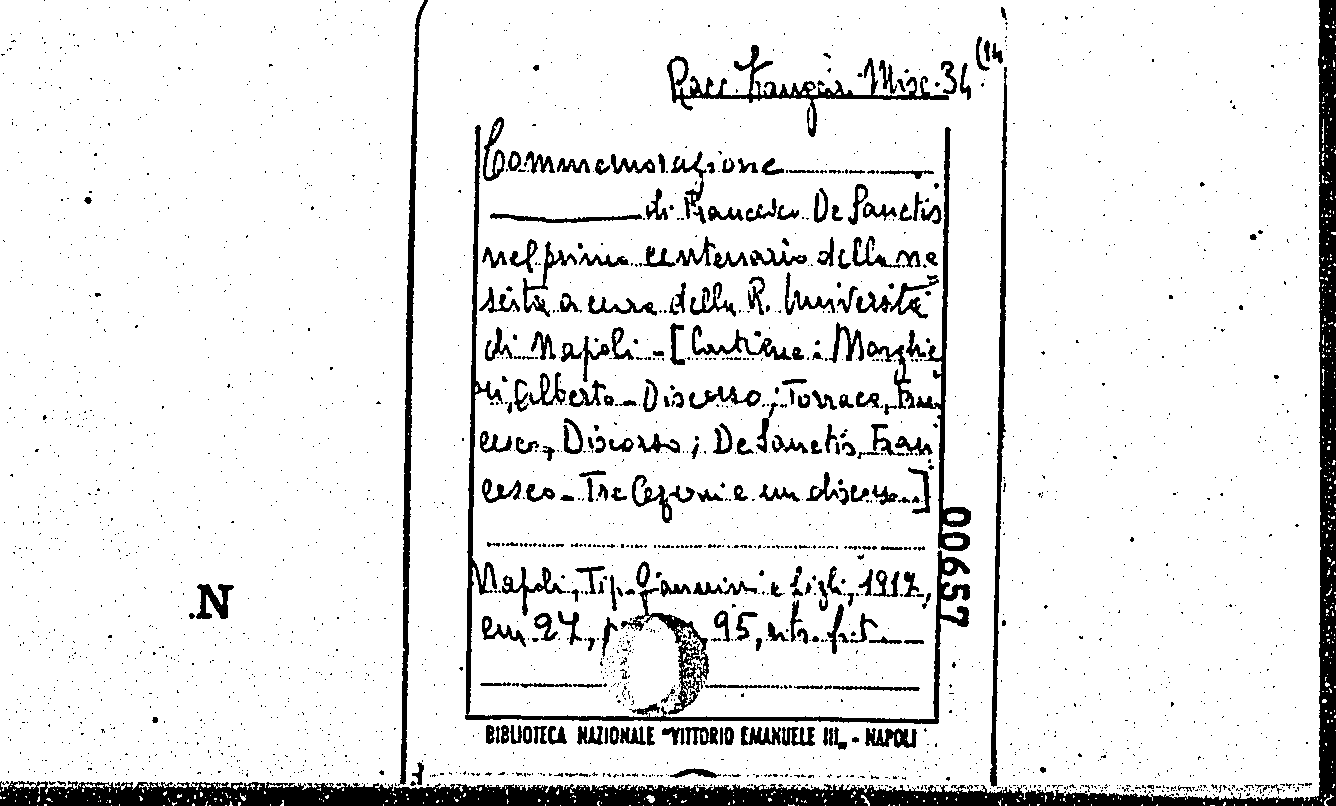 Racc. Misc. 34 (14
Commemorazione
di Francesco De Sanctis
nel primo centenario della na
scita a cura della R. Università
di Napoli - [Contiene: Marghie
ri, Alberto - Discorso; Torraca, Fran
cesco, Discorso; De Sanctis, Fran
cesco - Tre lezioni e un discorso.]
00657
Napoli, Tip. Giannini e figli, 1917,
.N
cm 27, 95, ritr. f. t.
BIBLIOTECA NAZIONALE "VITTORIO EMANUELE III„ - NAPOLI